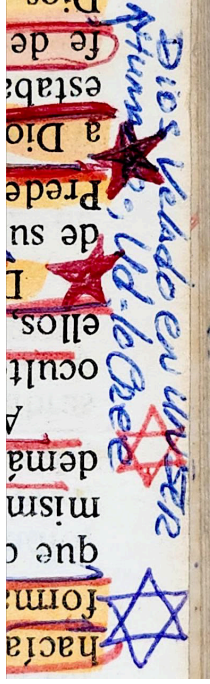 hacía
forma
que
mism
demá
A
ocult
ellos,
de su
Prede
a Dio
estaba
fe de
Dios
Dios Velado en un
Ud. lo Cree